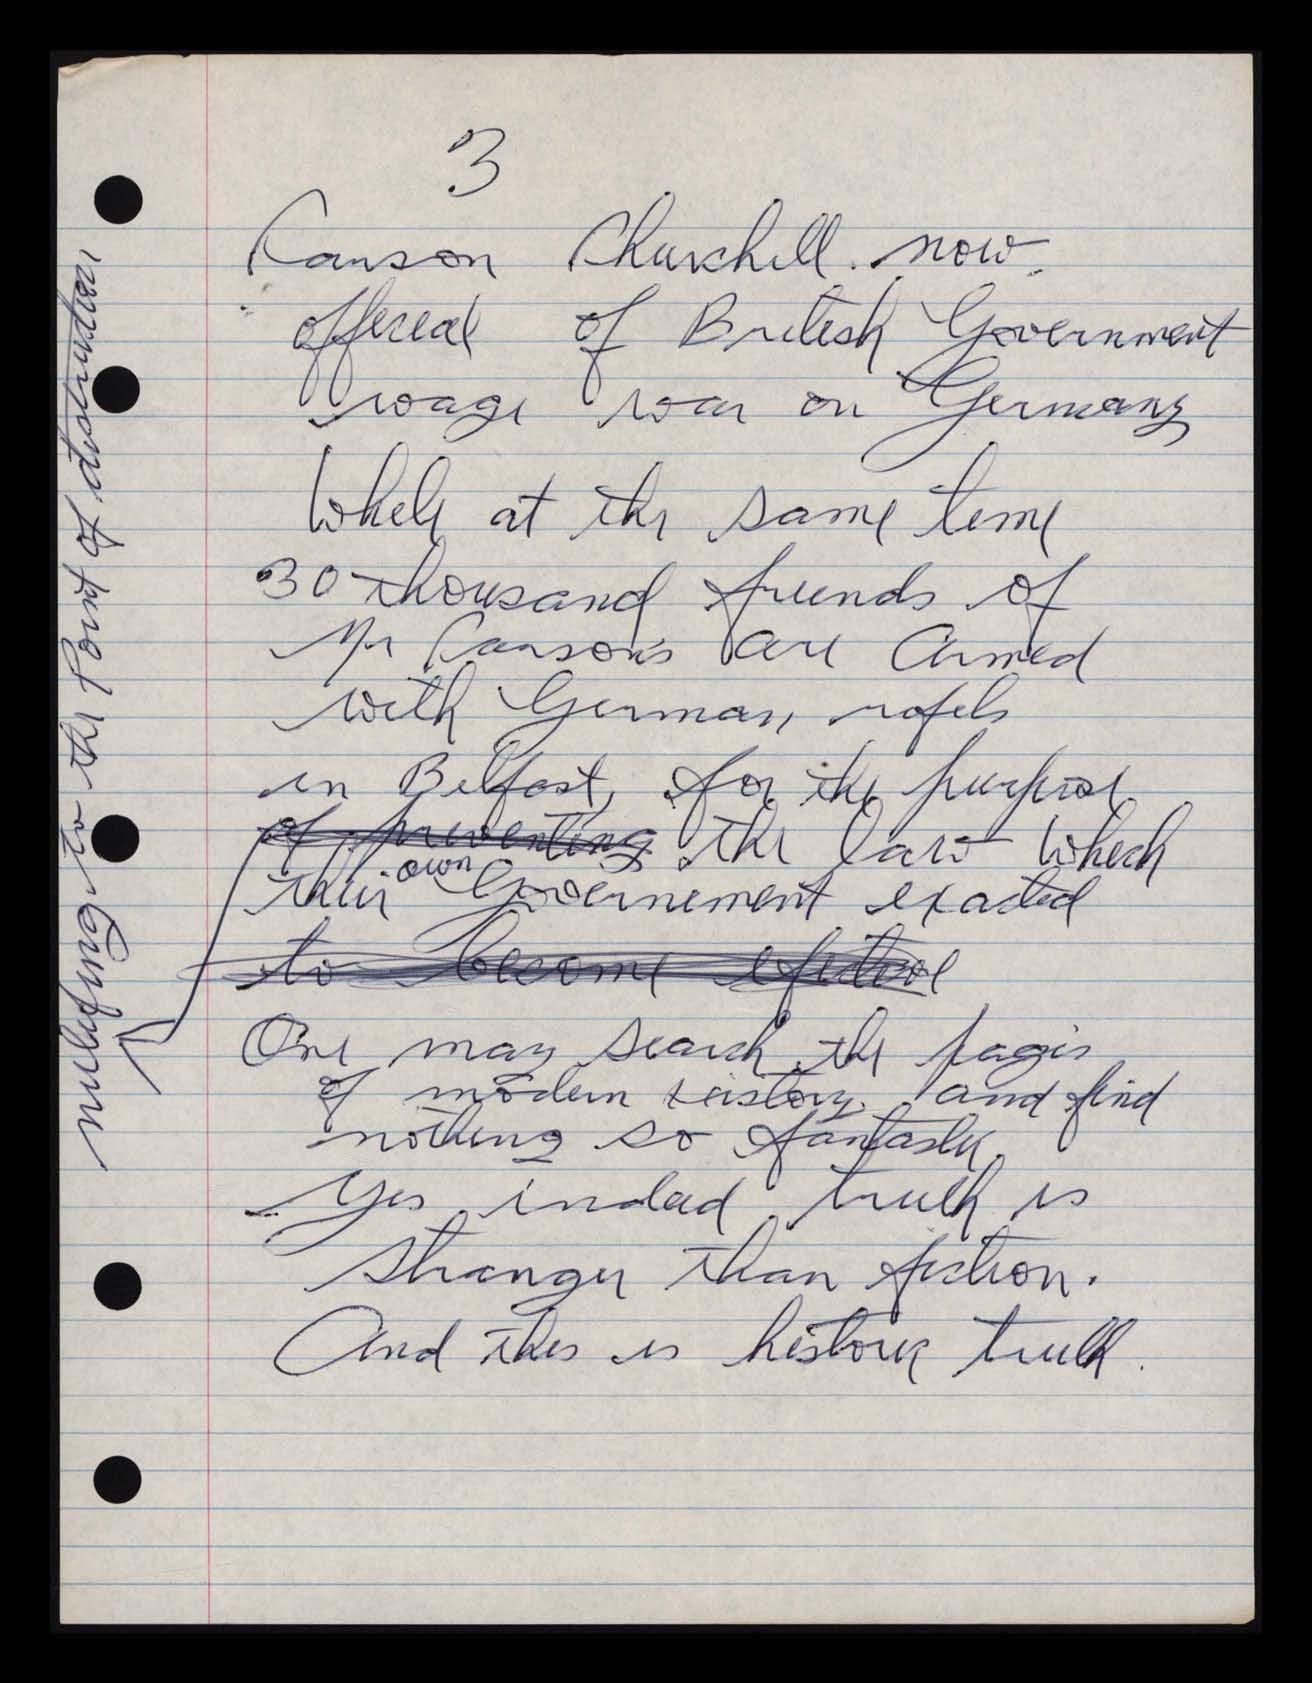 3
Carson Churchill. now
offecial of British Government
wage war on Germany
While at the same time
30 thousand friends of
Mr Carson's are armed
with German rifels
in Belfast, for the purpose
of preventing the law which
their own Governement exacted
to become efective
One may search the pages
of modern history. and find
nothing so fantastic.
Yes indeed truth is
stranger than fiction.
And this is historic truth.
nulifing to the Point of distruction